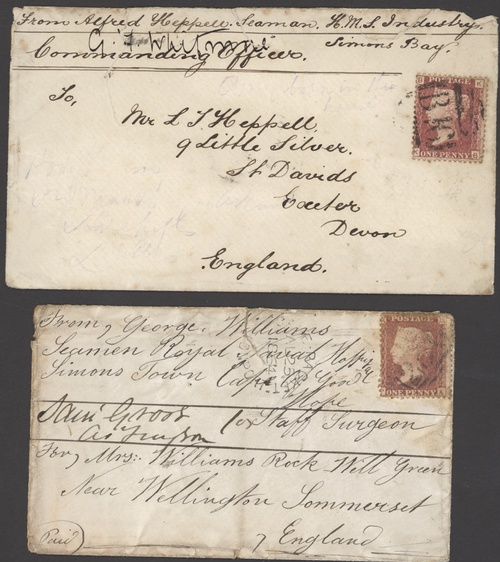 From Alfred Heppell. Seaman. H.M.S. Industry.
Simons Bay.
Commanding Officer.
To,
Mr L T Heppell.
9 Little Silver.
St Davids
Exeter
Devon
England.
POSTAGE
ONE PENNY
From, George, Williams
Seamen Royal Naval Hospital
Simons Town Cape Good
Hope
Staff Surgeon
For, Mrs. Williams Rock Well Green
Near Wellington Sommerset
England
Paid
POSTAGE
ONE PENNY